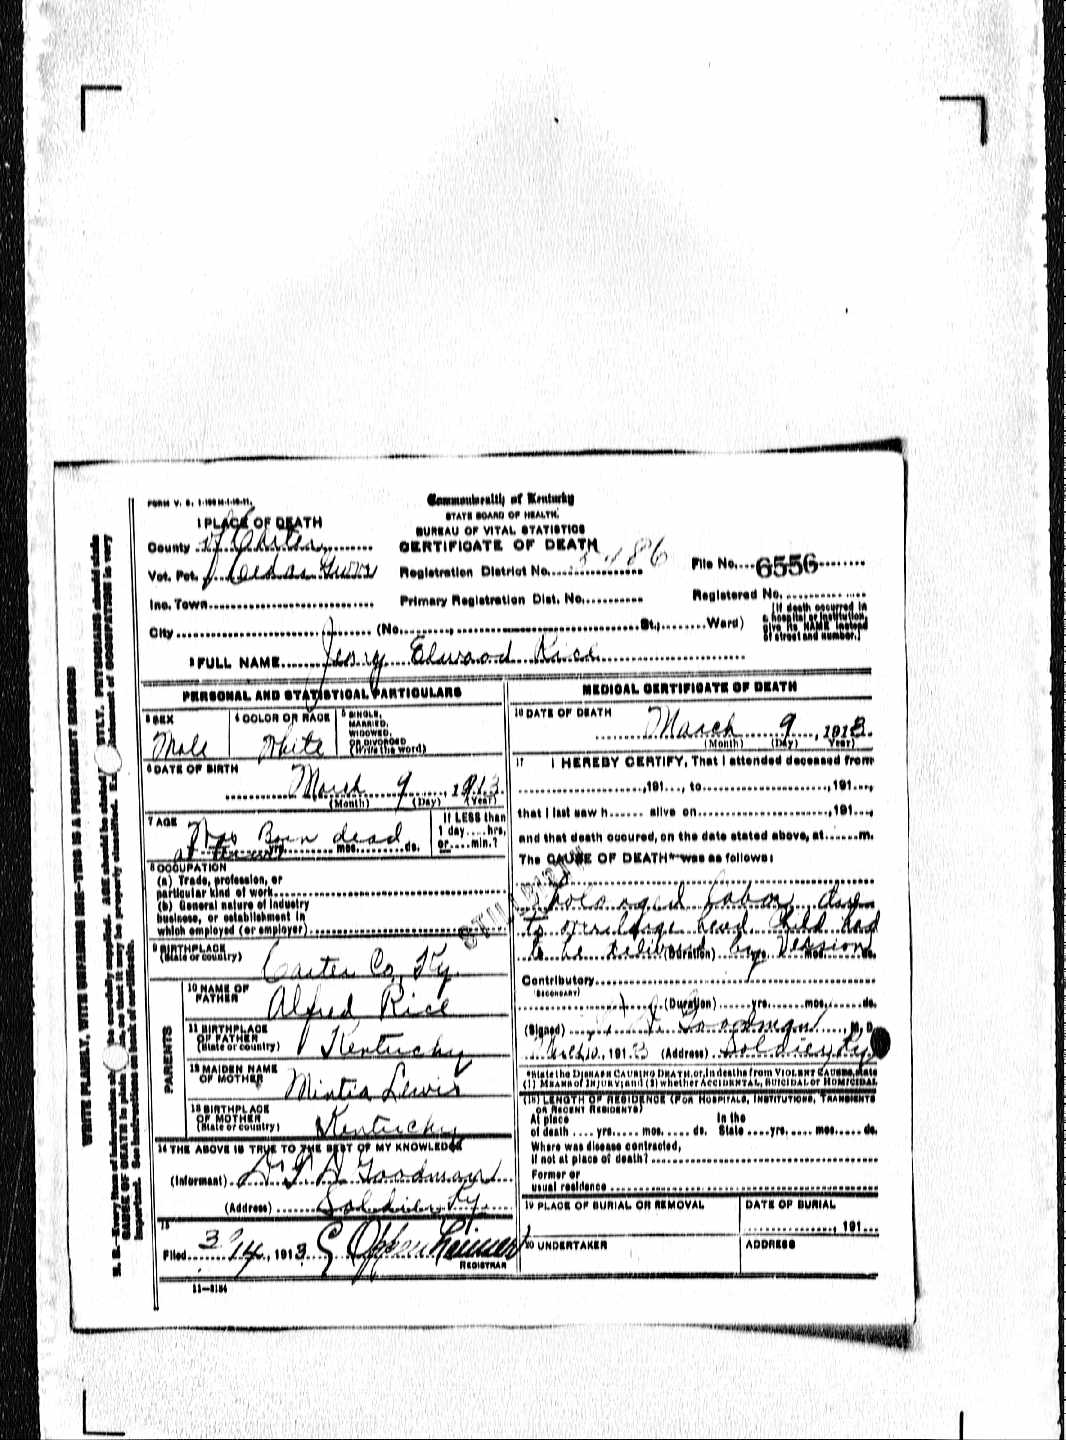 FORM V. S. 1-100 M-1-10-11.
Commonwealth of Kentucky
STATE BOARD OF HEALTH.
BUREAU OF VITAL STATISTICS
CERTIFICATE OF DEATH
1 PLACE OF DEATH
County of Carter
Vot. Pct. Cedar
Inc. Town
City (No. , St.; Ward)
Registration District No. 486
Primary Registration Dist. No.
File No. 6556
Registered No.
[If death occurred in
a hospital or institution,
give its NAME instead
of street and number.]
2 FULL NAME Elwood Rice
PERSONAL AND STATISTICAL PARTICULARS
3 SEX
Male
4 COLOR OR RACE
White
5 SINGLE,
MARRIED,
WIDOWED,
OR DIVORCED
(Write the word)
6 DATE OF BIRTH
March 9, 1913
(Month) (Day) (Year)
7 AGE
Was Born dead
at
mos. ds.
If LESS than
1 day....hrs.
or....min.?
8 OCCUPATION
(a) Trade, profession, or
particular kind of work
(b) General nature of industry
business, or establishment in
which employed (or employer)
9 BIRTHPLACE
(State or country)
Carter Co, Ky.
PARENTS
10 NAME OF
FATHER
Alfred Rice
11 BIRTHPLACE
OF FATHER
(State or country)
Kentucky
12 MAIDEN NAME
OF MOTHER
Mintia Lewis
13 BIRTHPLACE
OF MOTHER
(State or country)
Kentucky
14 THE ABOVE IS TRUE TO THE BEST OF MY KNOWLEDGE
(Informant) Goodman
(Address) Soldier Ky.
15
Filed 3/14, 1913 Oppenheimer
REGISTRAR
11-3184
MEDICAL CERTIFICATE OF DEATH
16 DATE OF DEATH
March 9, 1913.
(Month) (Day) (Year)
17 I HEREBY CERTIFY, That I attended deceased from
,191..., to ,191...,
that I last saw h...... alive on ,191...,
and that death occured, on the date stated above, at......m.
The CAUSE OF DEATH* was as follows:
STILLBIRTH
Prolonged labor due
to head child had
to be delivered by Version
(Duration) yrs. mos. ds.
Contributory
(SECONDARY)
(Duration) yrs. mos. ds.
(Signed) Goodman M. D.
, 1913 (Address) Soldier, Ky.
*State the DISEASE CAUSING DEATH, or, in deaths from VIOLENT CAUSES, state
(1) MEANS OF INJURY; and (2) whether ACCIDENTAL, SUICIDAL OR HOMICIDAL
(18) LENGTH OF RESIDENCE (FOR HOSPITALS, INSTITUTIONS, TRANSIENTS
OR RECENT RESIDENTS)
At place In the
of death ....yrs.....mos.....ds. State ....yrs.....mos.....ds.
Where was disease contracted,
if not at place of death?
Former or
usual residence
19 PLACE OF BURIAL OR REMOVAL
DATE OF BURIAL
, 191...
20 UNDERTAKER
ADDRESS
WRITE PLAINLY, WITH UNFADING INK—THIS IS A PERMANENT RECORD
N. B.—Every item of information should be carefully supplied. AGE should be stated EXACTLY. PHYSICIANS should state
CAUSE OF DEATH in plain terms, so that it may be properly classified. Exact statement of OCCUPATION is very
important. See instructions on back of certificate.